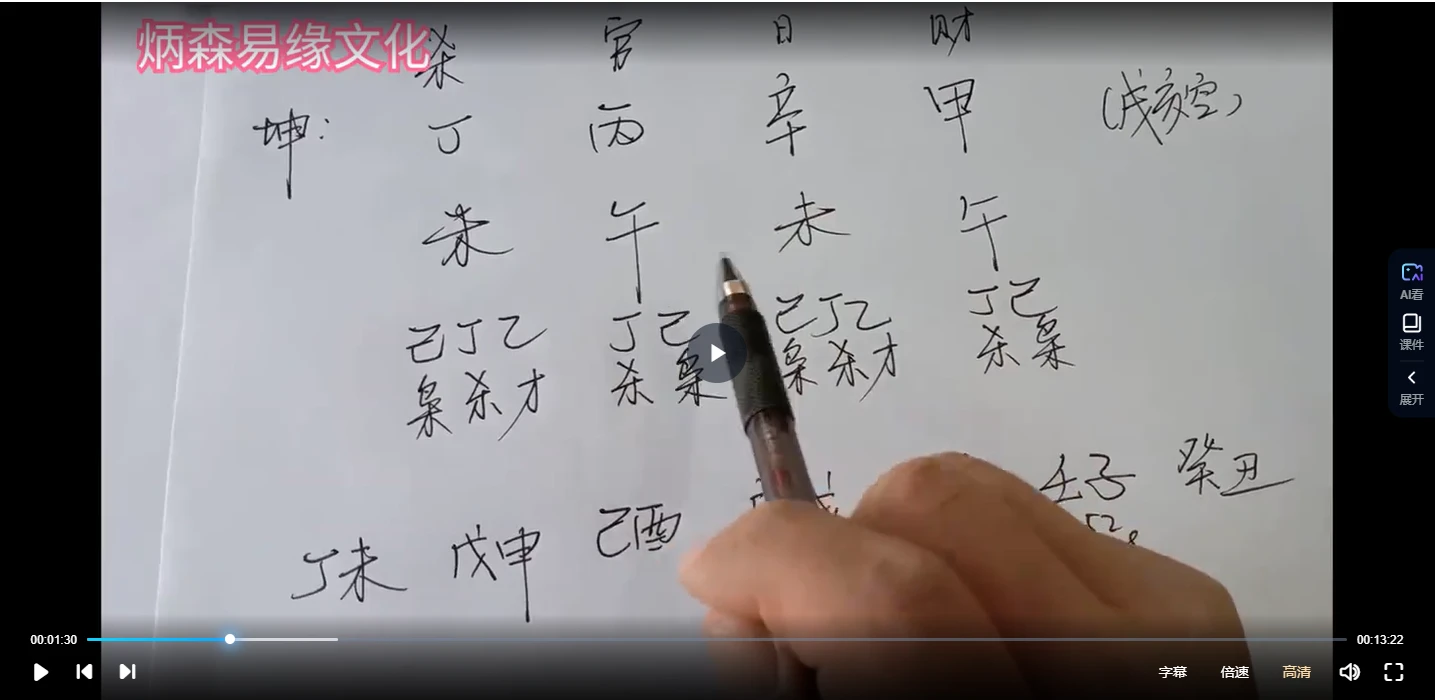 炳森易缘文化
杀 官 日 财
坤: 丁 丙 辛 甲 (戌亥空)
未 午 未 午
己丁乙 丁己 己丁乙 丁己
枭杀才 杀枭 枭杀才 杀枭
丁未 戊申 己酉 壬子 癸丑
AI看
课件
展开
00:01:30 00:13:22
字幕 倍速 高清